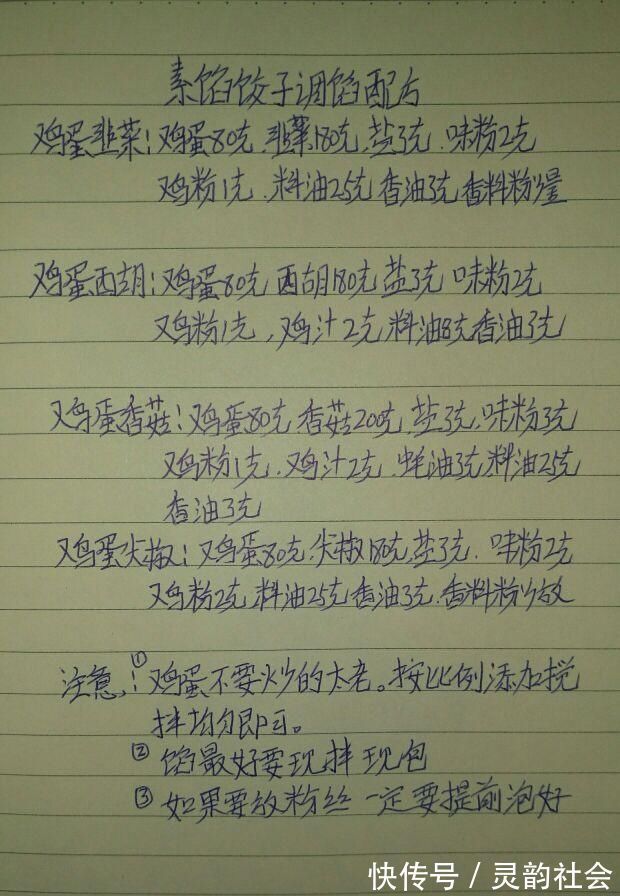 素馅饺子调馅配方
鸡蛋韭菜:鸡蛋80克.韭菜180克.盐3克.味粉2克
鸡粉1克.料油25克香油3克香料粉少量
鸡蛋西胡:鸡蛋80克西胡180克盐3克味粉2克
鸡粉1克,鸡汁2克料油8克香油3克
鸡蛋香菇:鸡蛋80克.香菇200克.盐3克.味粉3克
鸡粉1克.鸡汁2克.蚝油3克.料油25克
香油3克
鸡蛋尖椒:鸡蛋80克.尖椒180克盐3克.味粉2克
鸡粉2克料油25克香油3克.香料粉少放
注意:①鸡蛋不要炒的太老。按比例添加搅
拌均匀即可。
②馅最好要现拌现包
③如果要放粉丝一定要提前泡好
快传号/灵韵社会